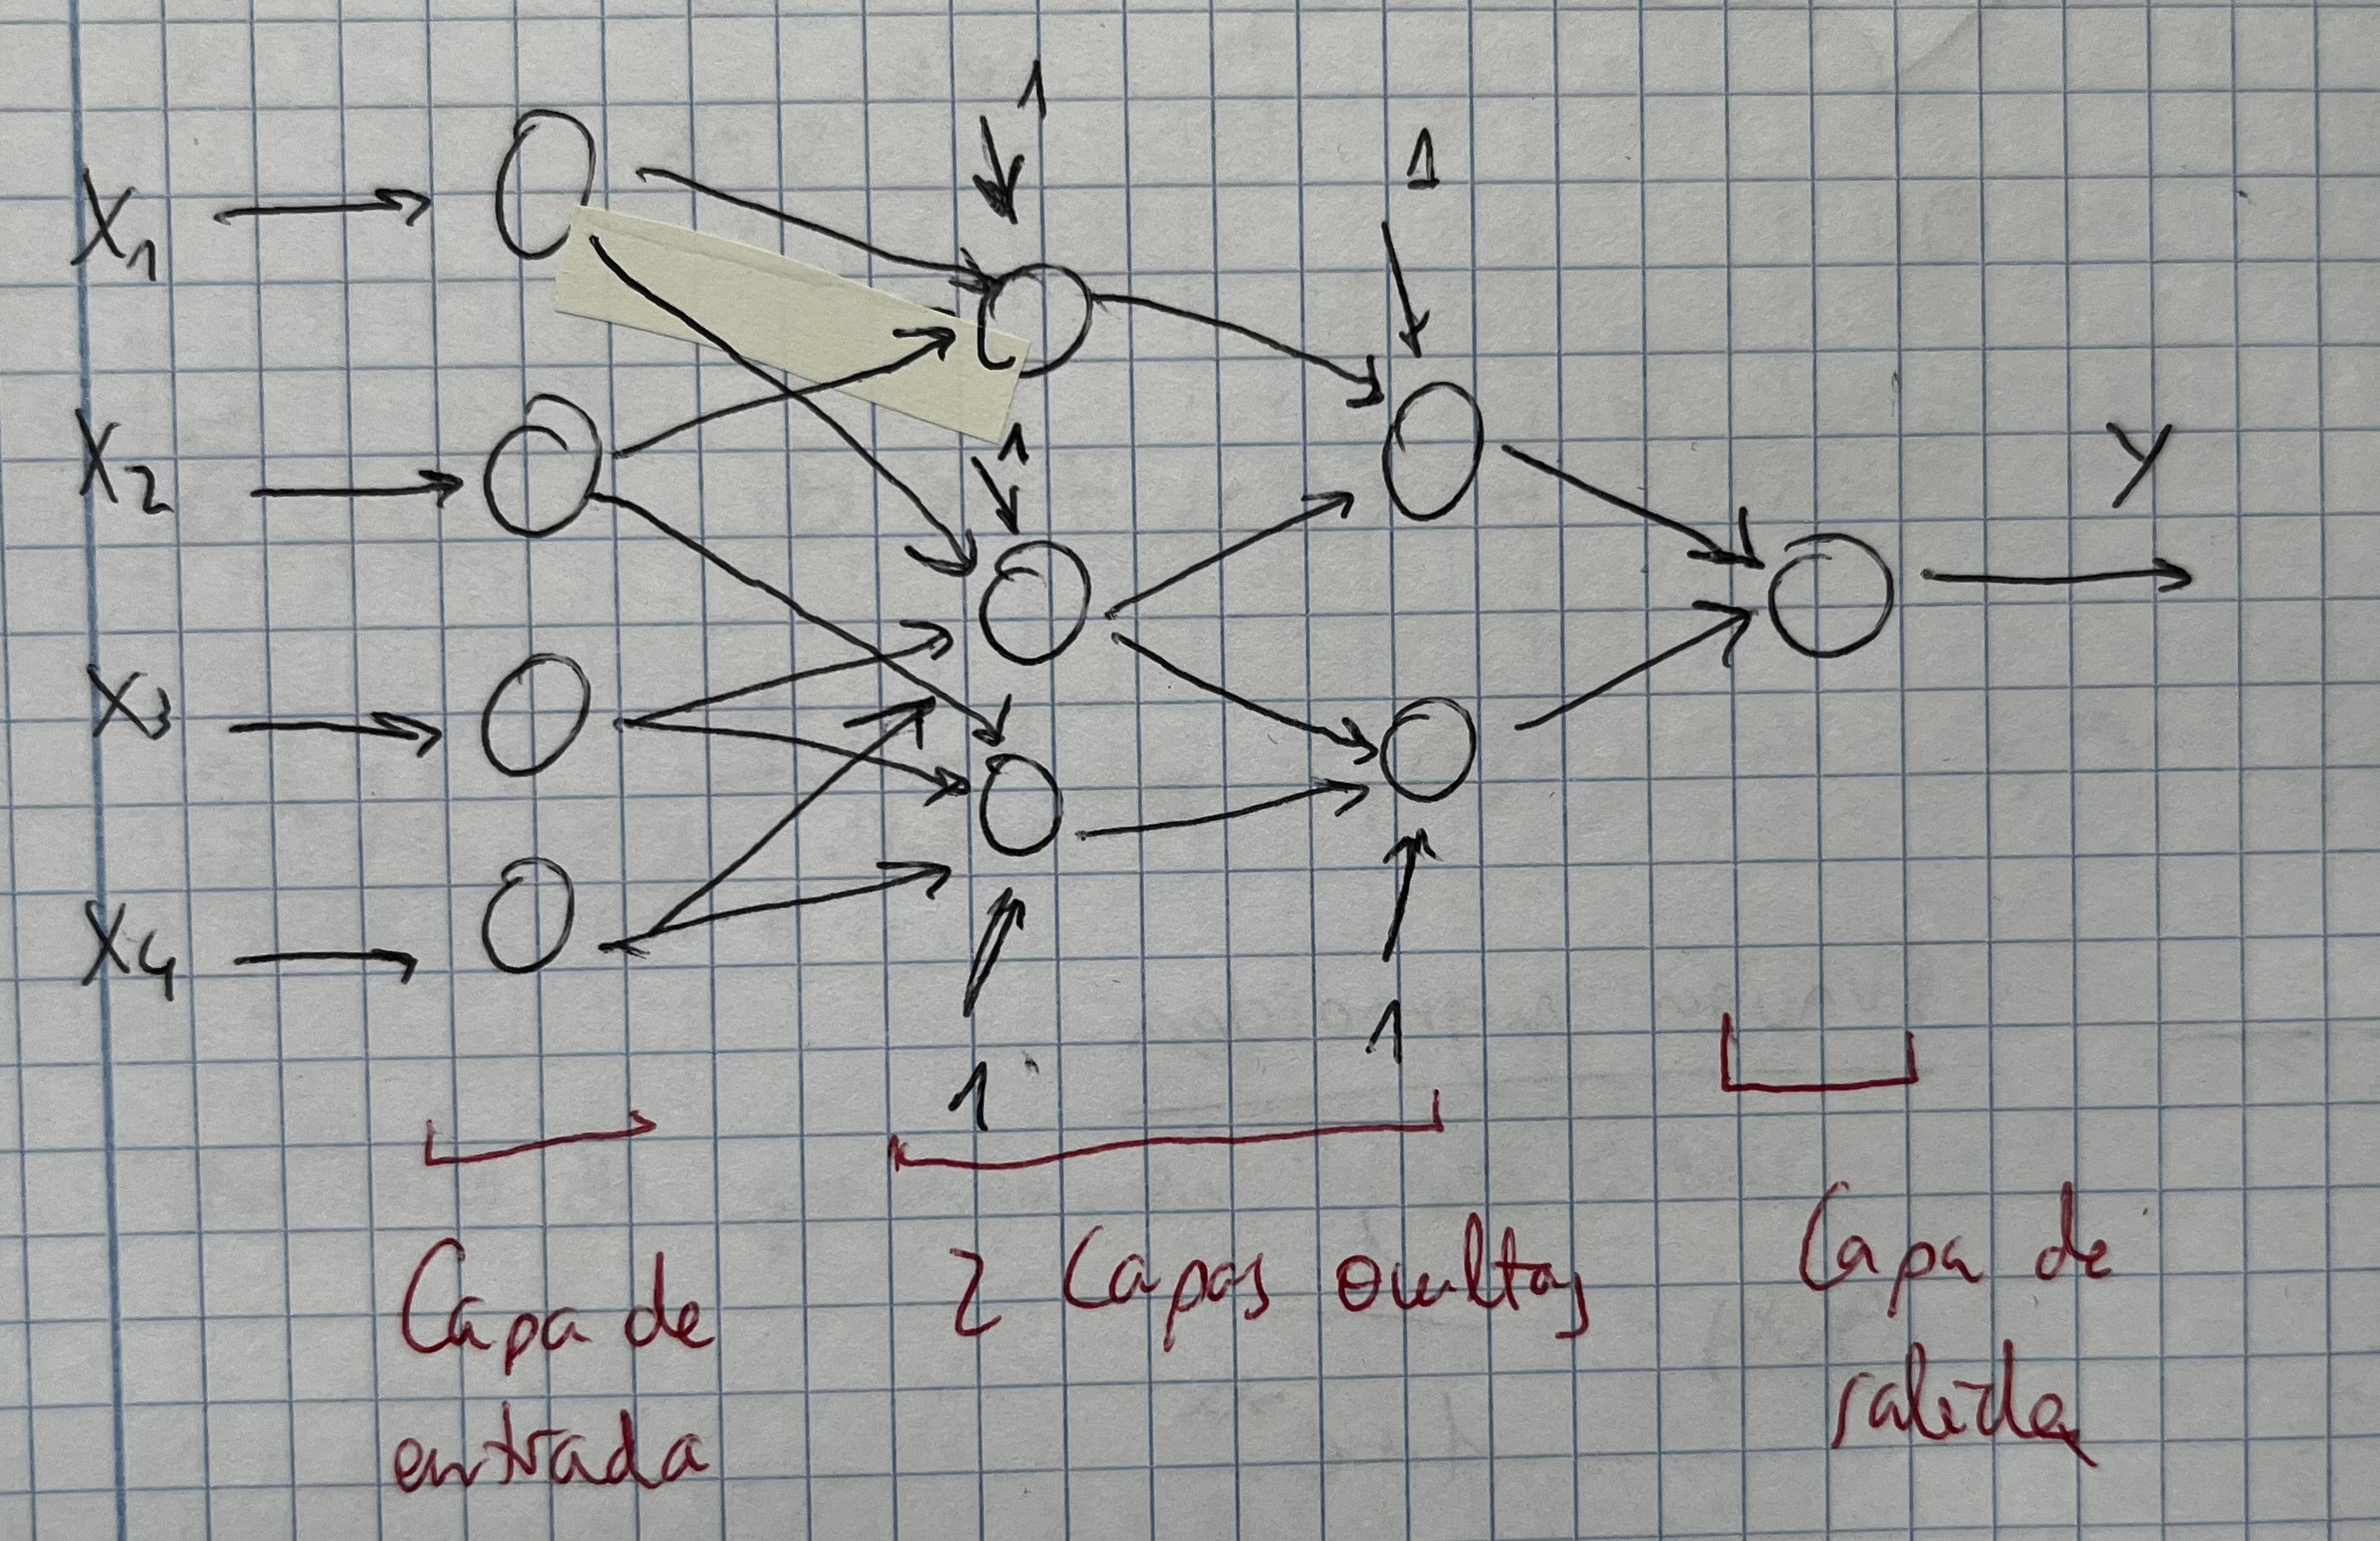 1
1
X1
1
X2
Y
X3
X4
1
1
Capa de
entrada
2 Capas ocultas
Capa de
salida